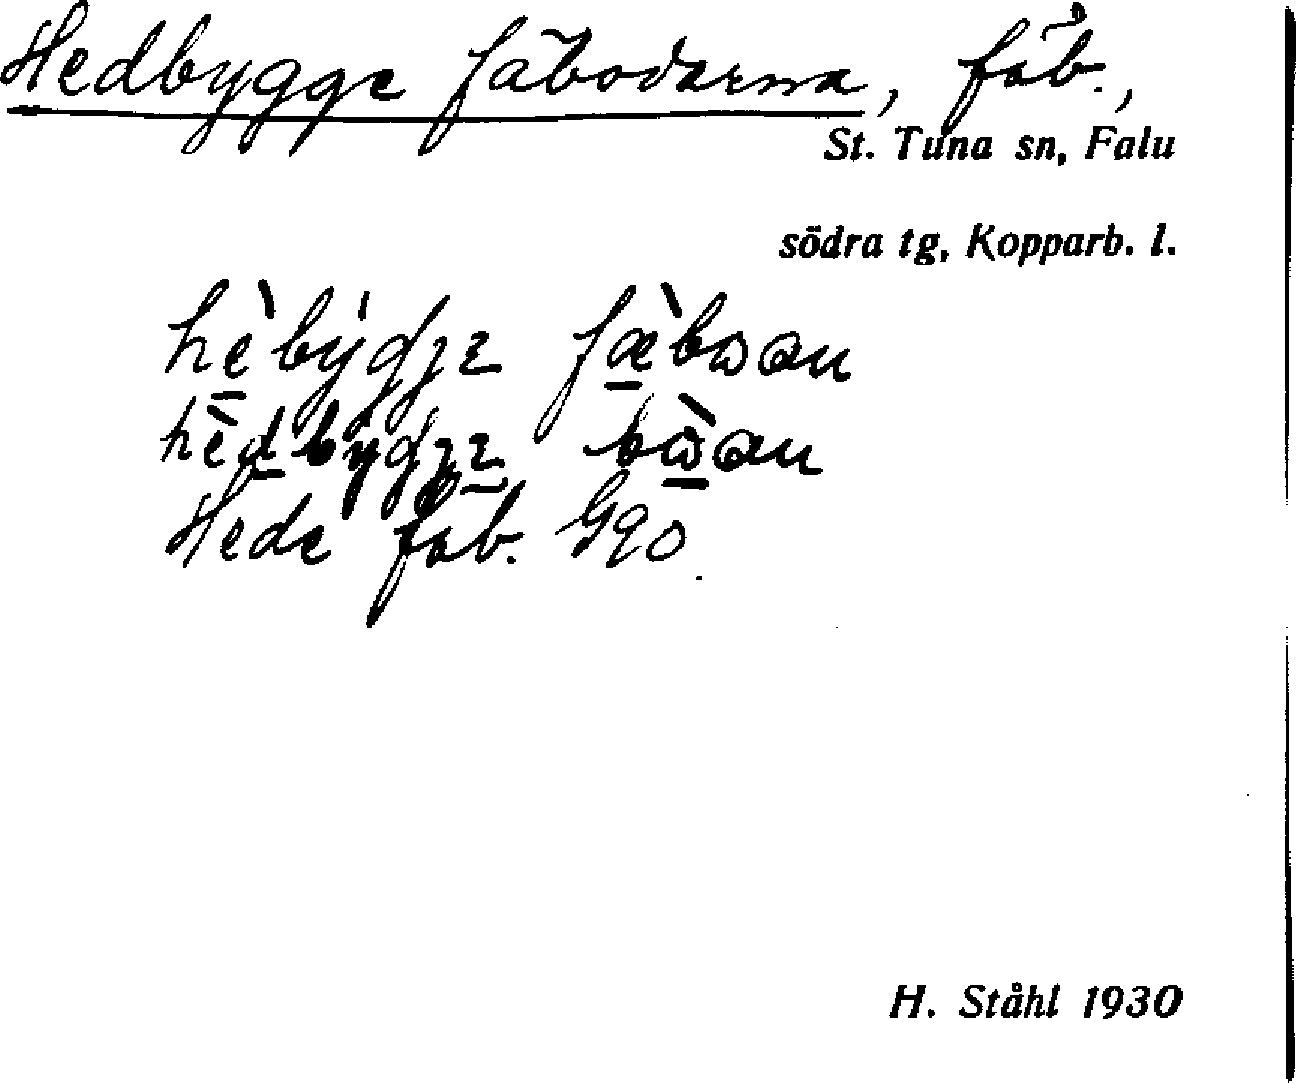 Hedbygge fäbodarna, fäb.,
St. Tuna sn, Falu
södra tg, Kopparb. l.
hèby̍gjɛ fæ̀bωαn
hèdbygjɛ bὼαn
Hede fäb. Gqo
H. Ståhl 1930